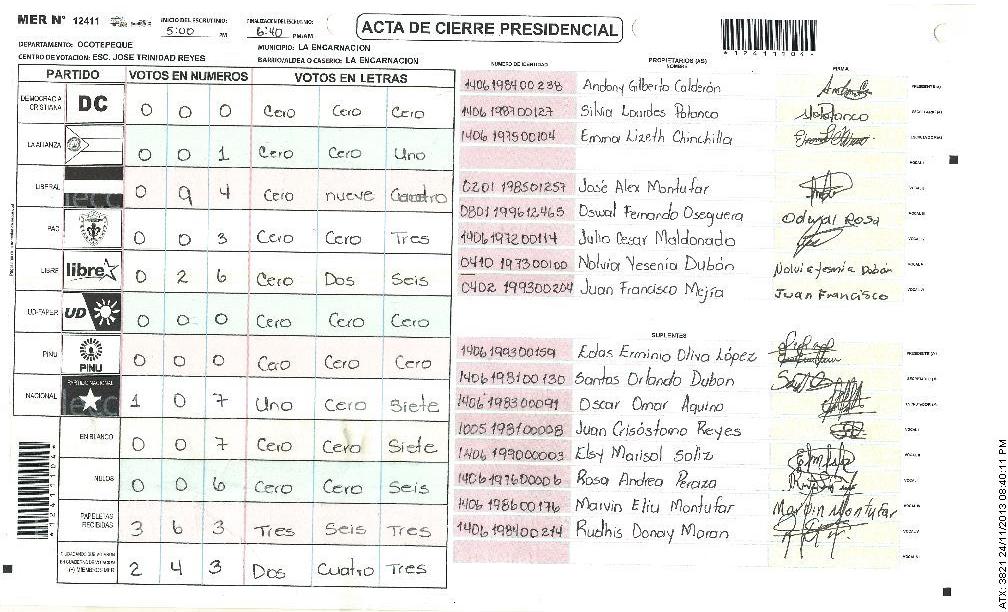 MER N° 12411
INICIO DEL ESCRUTINIO: 5:00 PM
FINALIZACION DEL ESCRUTINIO: 6:40 PM/AM
ACTA DE CIERRE PRESIDENCIAL
DEPARTAMENTO: OCOTEPEQUE
MUNICIPIO: LA ENCARNACION
CENTRO DE VOTACION: ESC. JOSE TRINIDAD REYES
BARRIO/ALDEA O CASERIO: LA ENCARNACION
PARTIDO VOTOS EN NUMEROS VOTOS EN LETRAS
DEMOCRACIA CRISTIANA DC 0 0 0 Cero Cero Cero
LA ALIANZA 0 0 1 Cero Cero Uno
LIBERAL 0 9 4 Cero nueve Cuatro
PAC 0 0 3 Cero Cero Tres
LIBRE libre 0 2 6 Cero Dos Seis
UD-FAPER UD 0 0 0 Cero Cero Cero
PINU PINU 0 0 0 Cero Cero Cero
NACIONAL PARTIDO NACIONAL 1 0 7 Uno Cero Siete
EN BLANCO 0 0 7 Cero Cero Siete
NULOS 0 0 6 Cero Cero Seis
PAPELETAS RECIBIDAS 3 6 3 Tres Seis Tres
CIUDADANOS QUE VOTARON EN CUADERNO DE VOTACION (+) MIEMBROS MER 2 4 3 Dos Cuatro Tres
NUMERO DE IDENTIDAD PROPIETARIOS (AS) NOMBRE FIRMA
1406 1984 00238 Andony Gilberto Calderón
1406 1987 00127 Silvia Lourdes Polanco
1406 1975 00104 Emma Lizeth Chinchilla
0201 1985 01257 José Alex Montufar
0801 1996 12465 Oswal Fernando Oseguera
1406 1972 00114 Julio Cesar Maldonado
0410 1973 00100 Nolvia Yesenia Dubón Nolvia Yesenia Dubón
0402 1993 00204 Juan Francisco Mejía Juan Francisco
SUPLENTES
1406 1993 00159 Edas Erminio Oliva López
1406 1981 00130 Santos Orlando Dubon
1406 1983 00091 Oscar Omar Aquino
1005 1981 00008 Juan Crisóstomo Reyes
1406 1990 00003 Elsy Marisol Soliz
1406 1976 00006 Rosa Andrea Peraza
1406 1986 00176 Marvin Eliu Montufar Marvin Montufar
1406 1984 00214 Rudhis Donay Moran
*12411104*
ATX: 3821 24/11/2013 08:40:11 PM